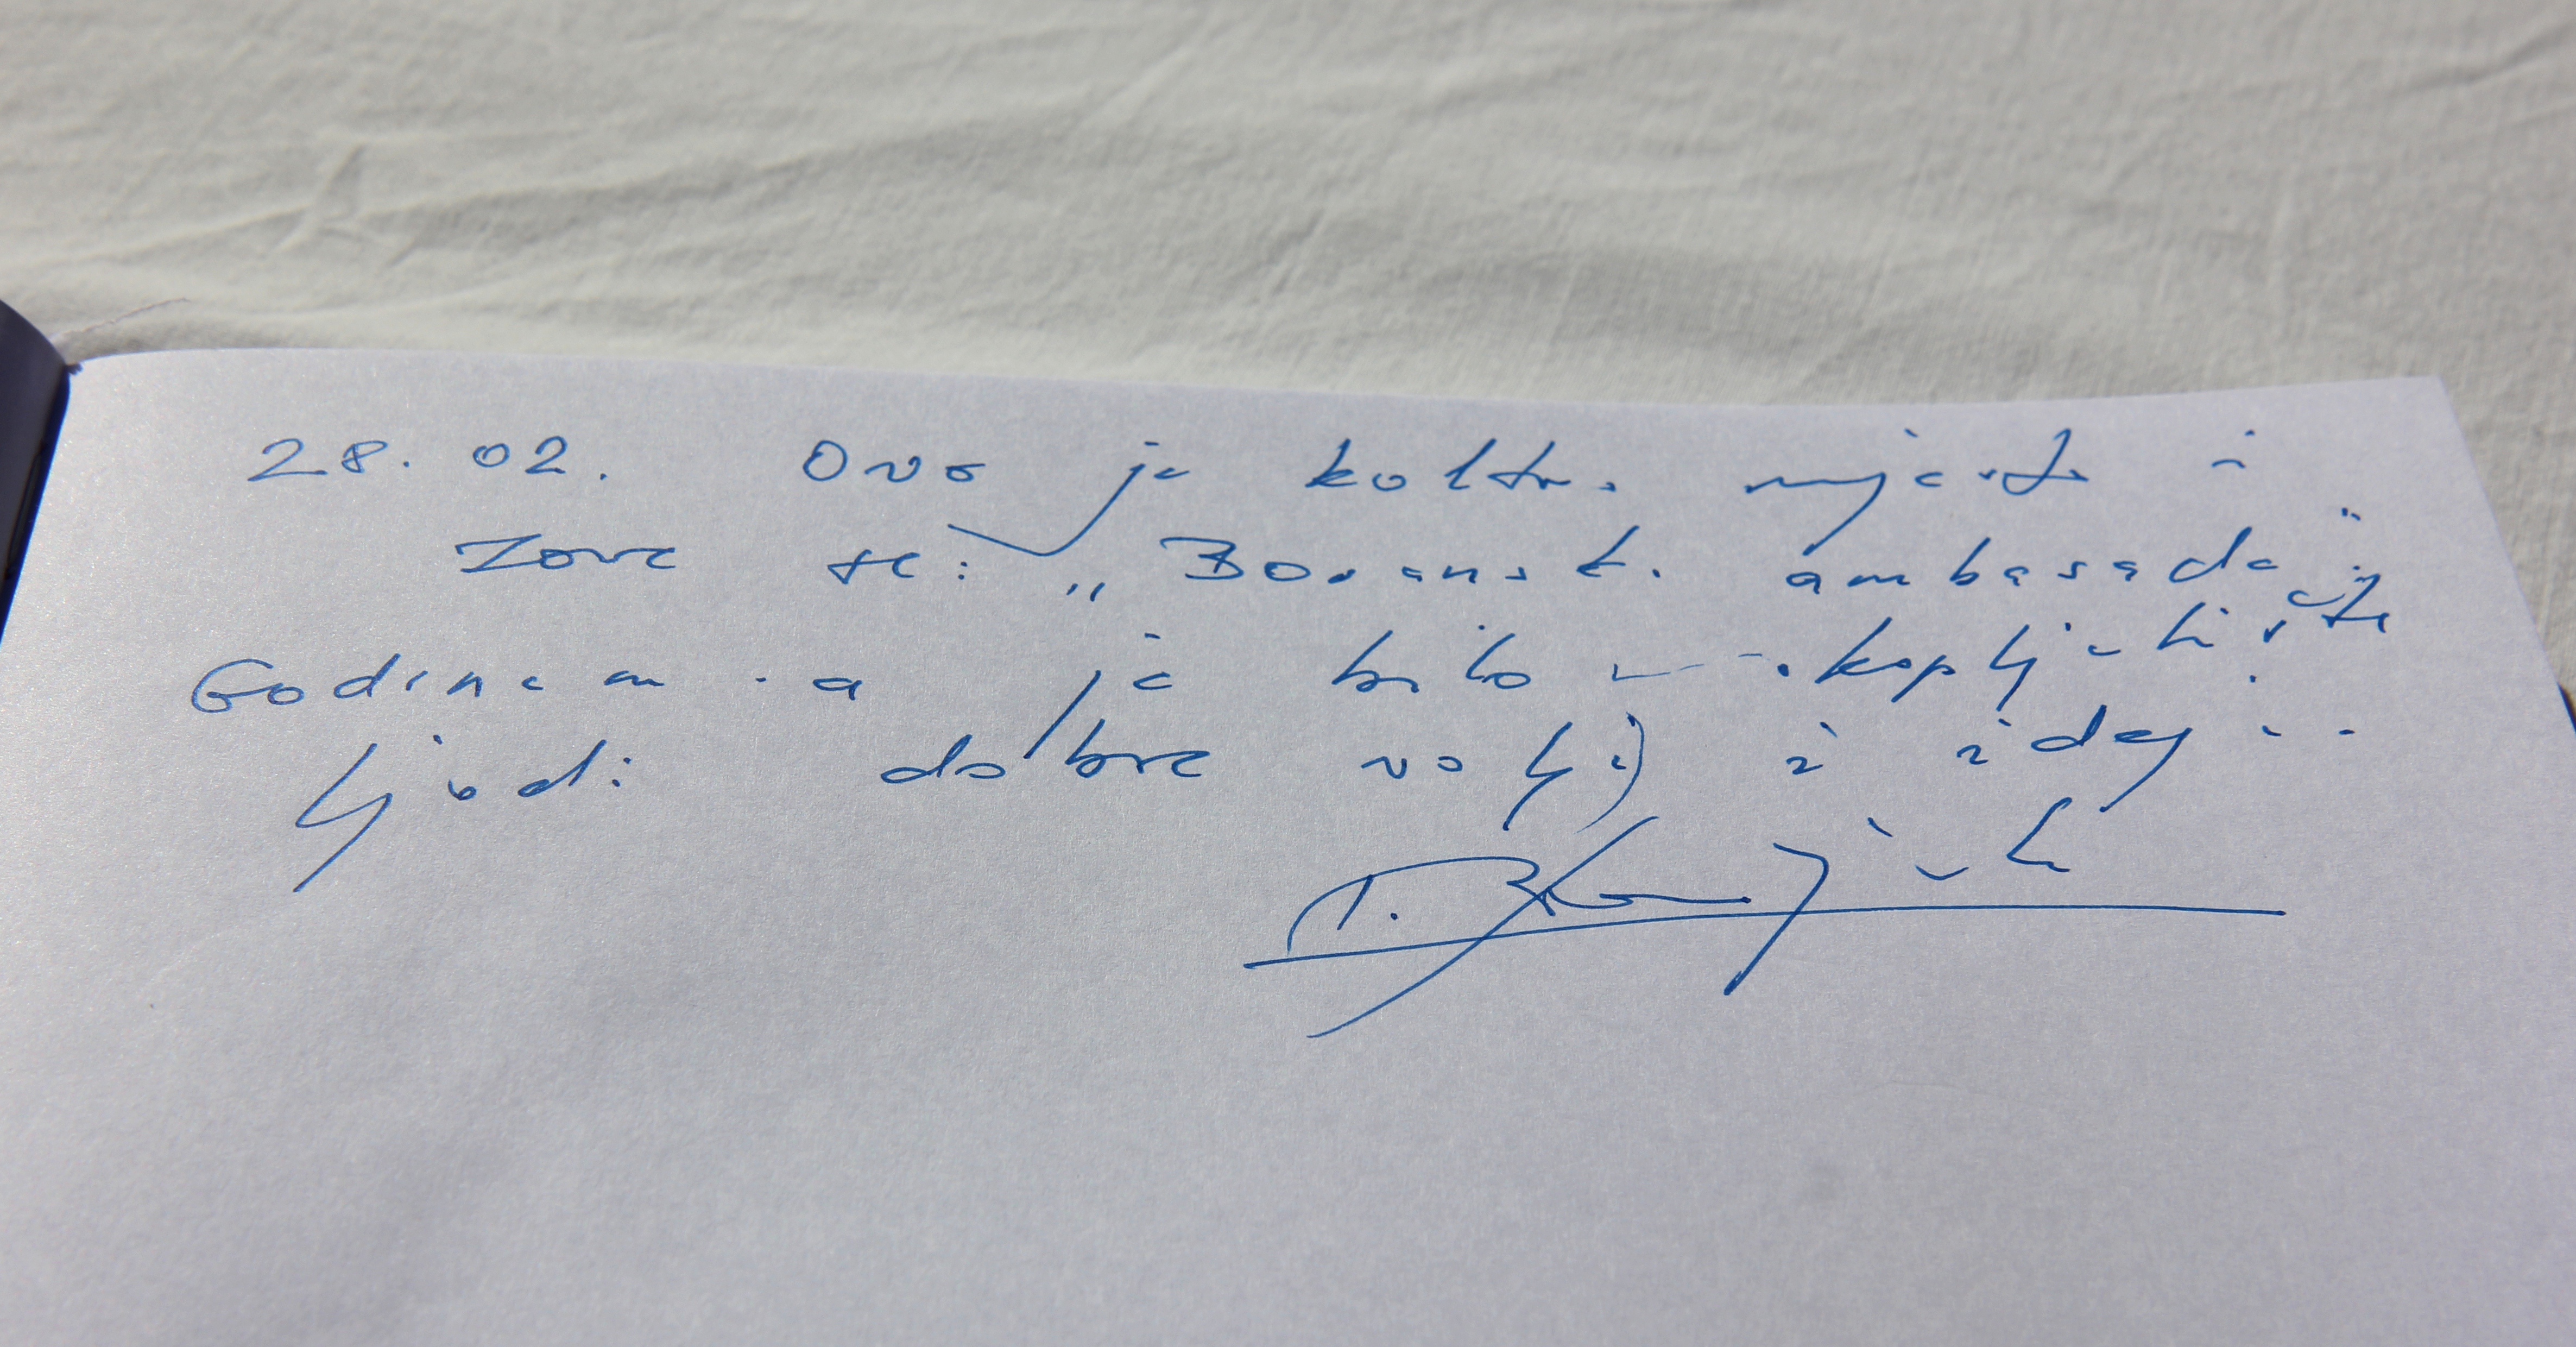 28. 02. Ovo je koltn. mjesto i
Zove se: „Bosansk. ambasada".
Godinama je bilo okupljalište
ljudi dobre volje i ideja..